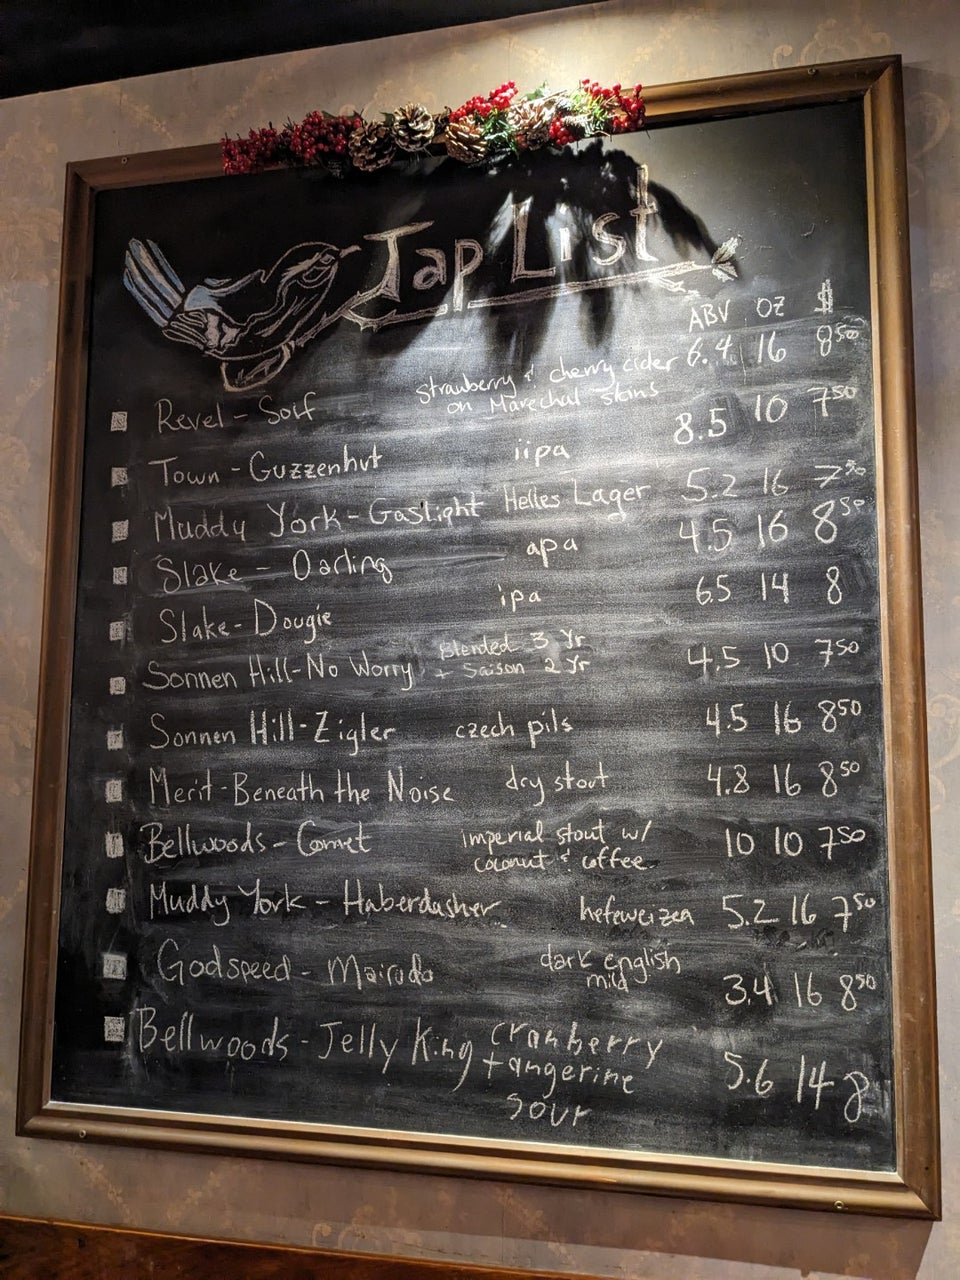 Tap List
ABV OZ $
Revel - Soif strawberry & cherry cider on Marechal skins 6.4 16 8⁵⁰
Town - Guzzenhut iipa 8.5 10 7⁵⁰
Muddy York - Gaslight Helles Lager 5.2 16 7⁵⁰
Slake - Darling apa 4.5 16 8⁵⁰
Slake - Dougie ipa 6.5 14 8
Sonnen Hill - No Worry Blended 3 Yr + Saison 2 Yr 4.5 10 7⁵⁰
Sonnen Hill - Zigler czech pils 4.5 16 8⁵⁰
Merit - Beneath the Noise dry stout 4.8 16 8⁵⁰
Bellwoods - Comet imperial stout w/ coconut & coffee 10 10 7⁵⁰
Muddy York - Haberdasher hefeweizen 5.2 16 7⁵⁰
Godspeed - Mairudo dark english mild 3.4 16 8⁵⁰
Bellwoods - Jelly King cranberry tangerine sour 5.6 14 8